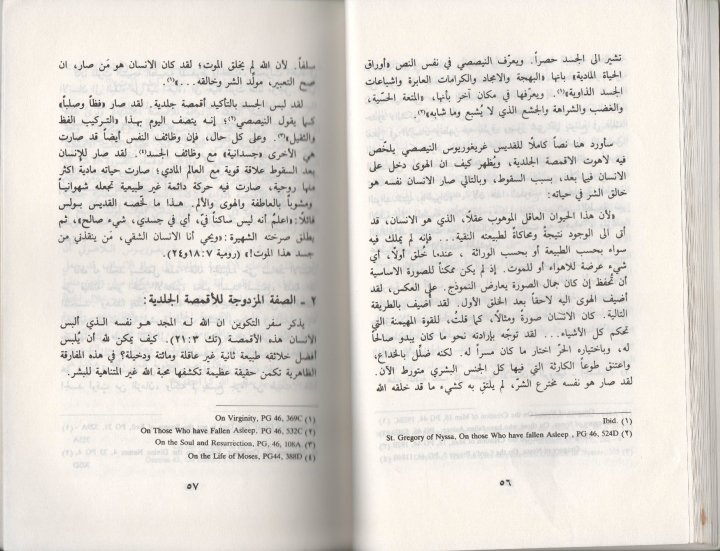 تشير الى الجسد حصراً. ويعرّف النيصصي في نفس النص «أوراق
الحياة المادية» بانها «البهجة والامجاد والكرامات العابرة واشباعات
الجسد الذاوية»(١). ويعرّفها في مكان آخر بأنها، «المتعة الحسّية،
والغضب والشراهة والجشع الذي لا يُشبع وما شابه»(٢).
سأورد هنا نصاً كاملاً للقديس غريغوريوس النيصصي يلخّص
فيه لاهوت الاقمصة الجلدية، ويُظهر كيف ان الهوى دخل على
الانسان فيما بعد، بسبب السقوط، وبالتالي صار الانسان نفسه هو
خالق الشر في حياته:
«لأن هذا الحيوان العاقل الموهوب عقلاً، الذي هو الانسان، قد
أتى الى الوجود نتيجةً ومحاكاةً لطبيعته النقية... فإنه لم يملك فيه
سواء بحسب الطبيعة أو بحسب الوراثة، عندما خُلق أولاً، أي
شيء عرضة للاهواء أو للموت. إذ لم يكن ممكناً للصورة الاساسية
أن تُحفظ إن كان جمال الصورة يعارض النموذج. على العكس، لقد
أضيف الهوى اليه لاحقاً بعد الخلق الأول. لقد أضيف بالطريقة
التالية. كان الانسان صورةً ومثالاً، كما قلتُ، للقوة المهيمنة التي
تحكم كل الأشياء... لقد توجّه بإرادته نحو ما كان يبدو صالحاً
له، وباختياره الحرّ اختار ما كان مسراً له. لكنه ضلّل بالخداع،
واعتنق طوعاً الكارثة التي فيها كل الجنس البشري متورط الآن.
لقد صار هو نفسه مخترع الشرّ، لم يلتقِ به كشيء ما قد خلقه الله
(١) Ibid.
(٢) St. Gregory of Nyssa, On those Who have fallen Asleep , PG 46, 524D
٥٦
سلفاً. لأن الله لم يخلق الموت؛ لقد كان الانسان هو مَن صار، ان
صح التعبير، مولّد الشر وخالقه...»(١).
لقد لبس الجسد بالتأكيد أقمصة جلدية. لقد صار «فظاً وصلباً»
كما يقول النيصصي(٢)؛ إنه يتصف اليوم بهذا «التركيب الفظ
والثقيل»(٣). وعلى كل حال، فإن وظائف النفس أيضاً قد صارت
هي الأخرى «جسدانية» مع وظائف الجسد(٤). لقد صار للإنسان
بعد السقوط علاقة قوية مع العالم المادي؛ صارت حياته مادية اكثر
منها روحية، صارت فيه حركة دائمة غير طبيعية تجعله شهوانياً
ومشوباً بالعاطفة والهوى والألم. هذا ما لخّصه القديس بولس
قائلاً: «اعلمُ أنه ليس ساكناً فيّ، أي في جسدي، شيء صالح»، ثم
يطلق صرخته الشهيرة: «ويحي أنا الانسان الشقي، مَن ينقذني من
جسد هذا الموت!» (رومية ٧: ١٨و٢٤).
٢ ـ الصفة المزدوجة للأقمصة الجلدية:
يذكر سفر التكوين ان الله له المجد هو نفسه الذي ألبس
الانسان هذه الأقمصة (تك ٣: ٢١). كيف يمكن لله أن يُلبس
أفضل خلائقه طبيعة ثانية غير عاقلة ومائتة ودخيلة؟ في هذه المفارقة
الظاهرية تكمن حقيقة عظيمة تكشفها محبة الله غير المتناهية للبشر.
(١) On Virginity, PG 46, 369C
(٢) On Those Who have Fallen Asleep, PG 46, 532C
(٣) On the Soul and Resurrection, PG, 46, 108A
(٤) On the Life of Moses, PG44, 388D
٥٧